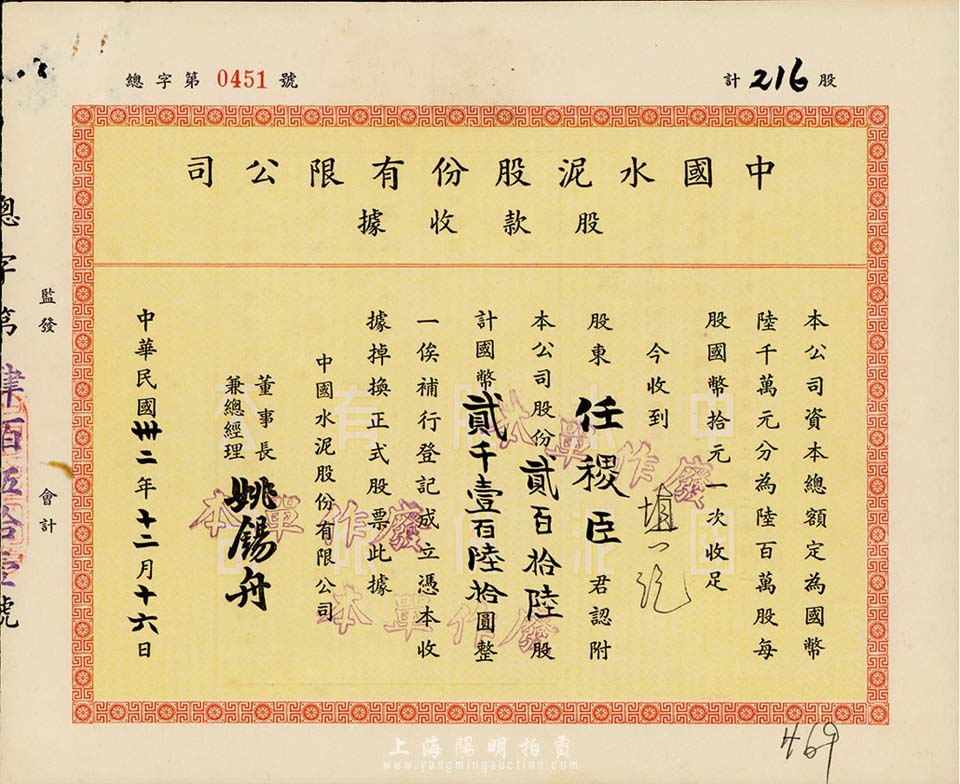 總字第 0451 號
計 216 股
中國水泥股份有限公司
股款收據
本公司資本總額定為國幣
陸千萬元分為陸百萬股每
股國幣拾元一次收足
今收到
股東任稷臣君認附
本公司股份貳百拾陸股
計國幣貳千壹百陸拾圓整
一俟補行登記成立憑本收
據掉換正式股票此據
中國水泥股份有限公司
董事長
兼總經理
姚錫舟
中華民國卅二年十二月十六日
本單作廢
本單作廢
本單作廢
中國水泥股份有限公司
監發
會計
總字第肆百伍拾壹號
469
上海陽明拍賣
www.yangmingauction.com